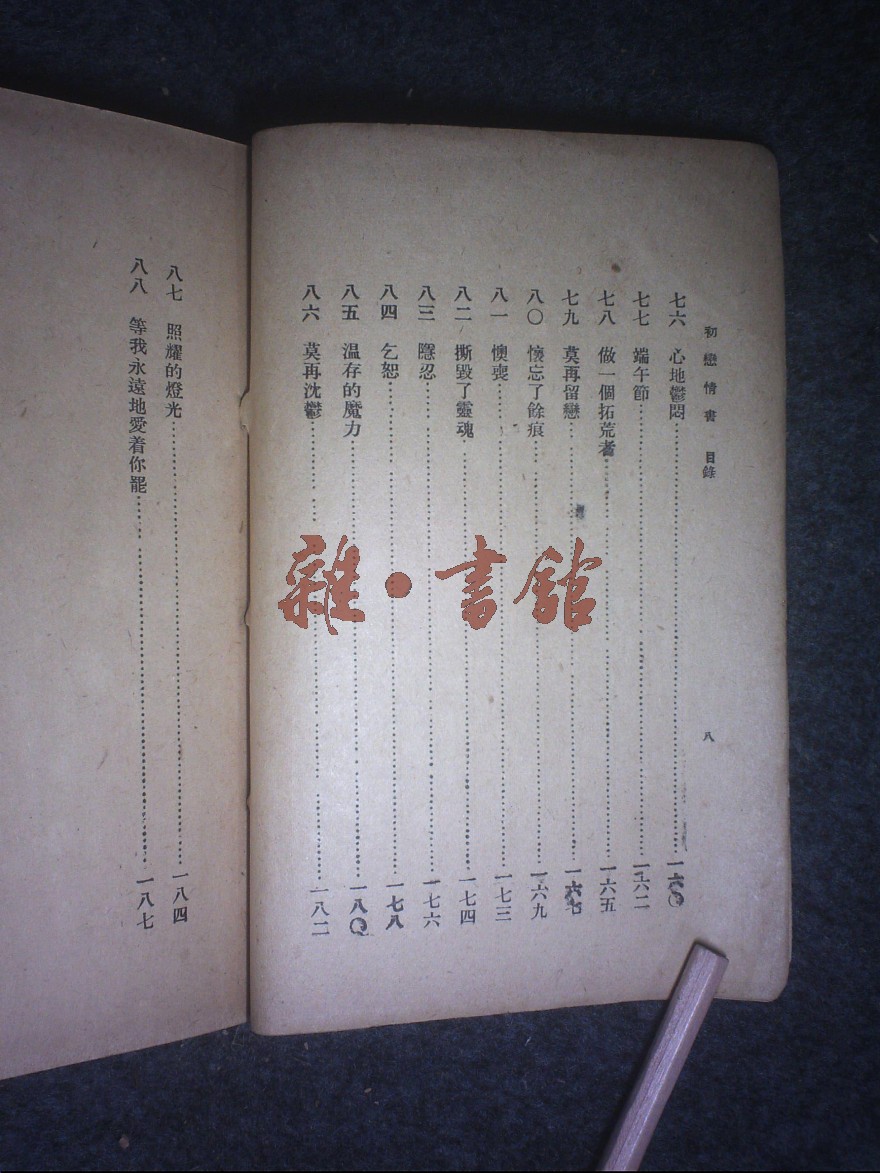 初戀情書 目錄 八
七六 心地鬱悶……一六〇
七七 端午節……一六二
七八 做一個拓荒者……一六五
七九 莫再留戀……一六七
八〇 懷忘了餘痕……一六九
八一 懊喪……一七三
八二 撕毀了靈魂……一七四
八三 隱忍……一七六
八四 乞恕……一七八
八五 温存的魔力……一八〇
八六 莫再沈鬱……一八二
八七 照耀的燈光……一八四
八八 等我永遠地愛着你罷……一八七
雜·書舘